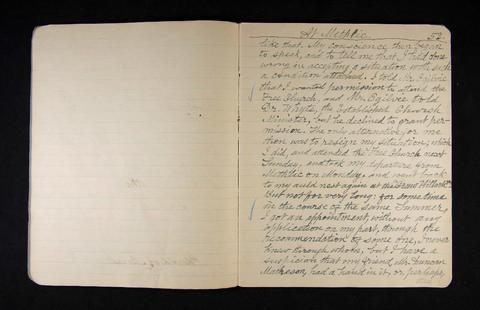 At Methlic. 53
like that. My conscience then began
to speak, and to tell me that I had done
wrong in accepting a situation with such
a condition attached. I told Mr Ogilvie
that I wanted permission to attend the
Free Church, and Mr. Ogilvie told
Dr. Whyte, the Established Church
Minister, but he declined to grant per-
mission. The only alternative for me
then was to resign my situation; which
I did, and attended the Free Church next
Sunday, and took my departure from
Methlic on Monday, and went back
to my auld nest again at the
But not for very long: for some time
in the course of the same Summer,
I got an appointment, without any
application on my part, through the
recommendation of some one, I never
knew through whom, but I have a
suspicion that my friend Mr. Duncan
Matheson, had a hand in it, or perhaps